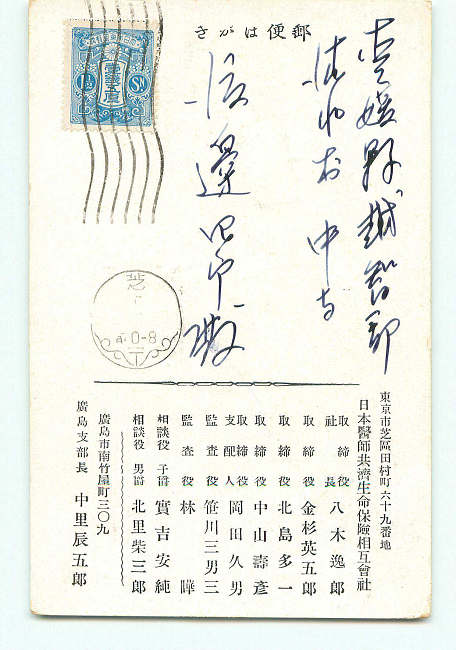 郵便はがき
愛媛縣越智郡
清水村 中寺
渡邊
東京市芝區田村町六十九番地
日本醫師共濟生命保險相互會社
取締役社長 八木逸郎
取締役 金杉英五郎
取締役 北島多一
取締役 中山壽彦
取締役支配人 岡田久男
監査役 笹川三男三
監査役 林曄
相談役 子爵 實吉安純
相談役 男爵 北里柴三郎
廣島市南竹屋町三〇九
廣島支部長 中里辰五郎